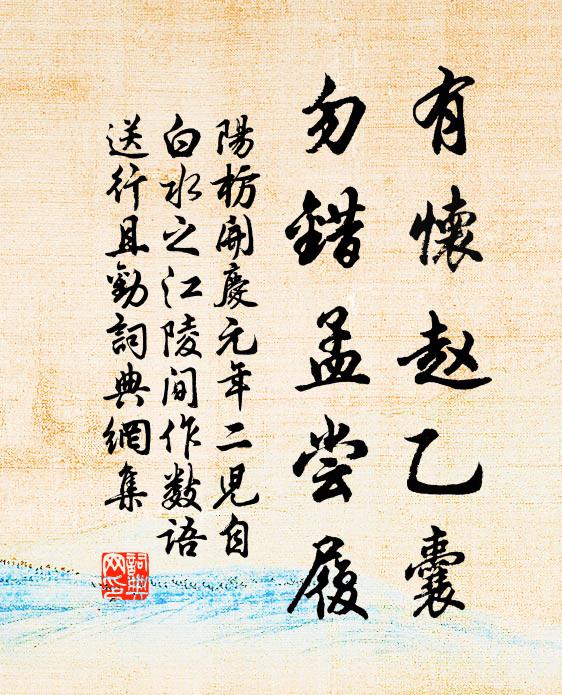 有懷赵乙囊
勿錯孟尝履
陽枋開慶元年二児自
白水之江陵间作数语
送行且勸詞典網集
詞典
网